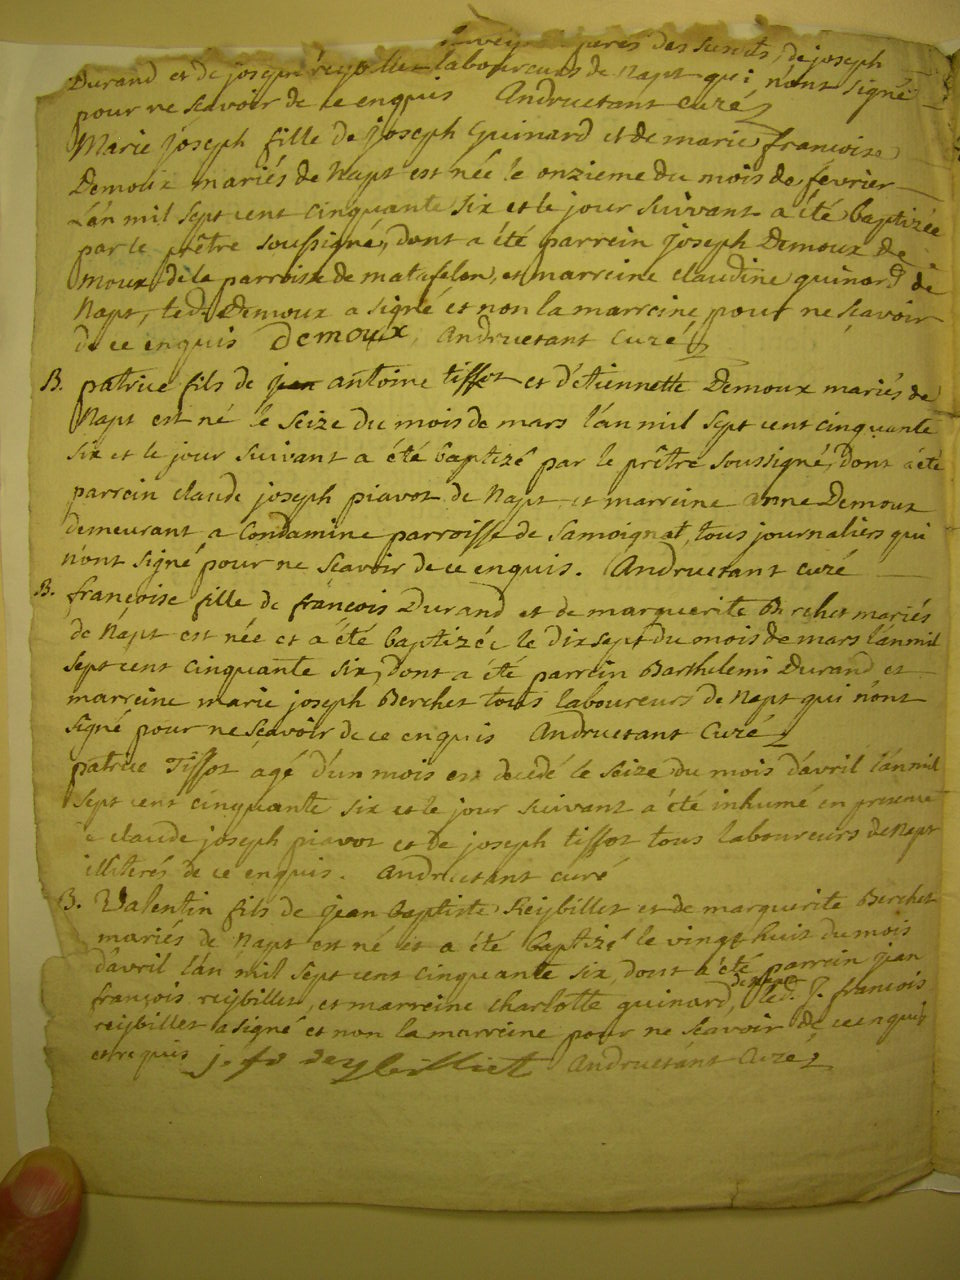 peres des susdits, de joseph
Durand et de joseph reybillet laboureurs de Napt qui n'ont signé
pour ne scavoir de ce enquis Andruetant curé
Marie joseph fille de joseph Guinard et de marie francoise
Demoux mariés de Napt est née le onzieme du mois de février
L'an mil sept cent cinquante six et le jour suivant a été baptizée
par le prêtre soussigné, dont a été parrein joseph Demoux de
moux de la parroisse de matafelon, et marreine claudine guinard de
Napt, led. Demoux a signé et non la marreine pour ne scavoir
de ce enquis Demoux, Andruetant curé
B. patrice fils de jean antoine tissot et d'etiennette Demoux mariés de
Napt est né le seize du mois de mars l'an mil sept cent cinquante
six et le jour suivant a été baptizé par le prêtre soussigné, dont a été
parrein claude joseph piavot de Napt et marreine anne Demoux
demeurant a Condamine parroisse de Samoignat, tous journaliers qui
n'ont signé pour ne scavoir de ce enquis. Andruetant curé
B. françoise fille de françois Durand et de marguerite Berchet mariés
de Napt est née et a été baptizée le dix sept du mois de mars l'an mil
sept cent cinquante six, dont a été parrein Barthelemi Durand et
marreine marie joseph Berchet tous laboureurs de Napt qui n'ont
signé pour ne scavoir de ce enquis Andruetant Curé
patrice Tissot agé d'un mois est decedé le seize du mois d'avril l'an mil
sept cent cinquante six et le jour suivant a été inhumé en presence
de claude joseph piavot et de joseph tissot tous laboureurs de Napt
illiterés de ce enquis. Andruetant curé
B. Valentin fils de jean baptiste Reybillet et de marguerite Berchet
mariés de Napt est né et a été baptizé le vingt huit du mois
d'avril l'an mil sept cent cinquante six, dont a été parrein jean
françois reybillet, et marreine charlotte guinard, led. J. francois
reybillet a signé et non la marreine pour ne scavoir de ce enquis
et requis j. fr reybilliet Andruetant Curé